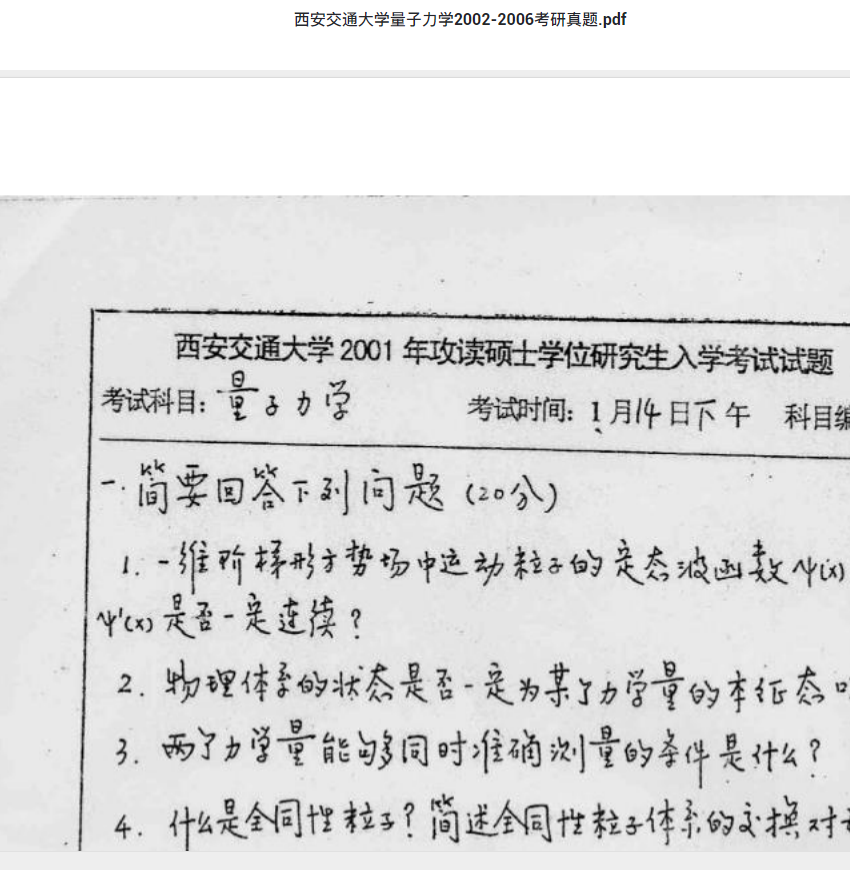 西安交通大学量子力学2002-2006考研真题.pdf
西安交通大学 2001 年攻读硕士学位研究生入学考试试题
考试科目：量子力学 考试时间：1月14日下午 科目编
一.简要回答下列问题（20分）
1. 一维阶梯形方势场中运动粒子的定态波函数ψ(x)
ψ'(x) 是否一定连续？
2. 物理体系的状态是否一定为某个力学量的本征态
3. 两个力学量能够同时准确测量的条件是什么？
4. 什么是全同性粒子？简述全同性粒子体系的交换对